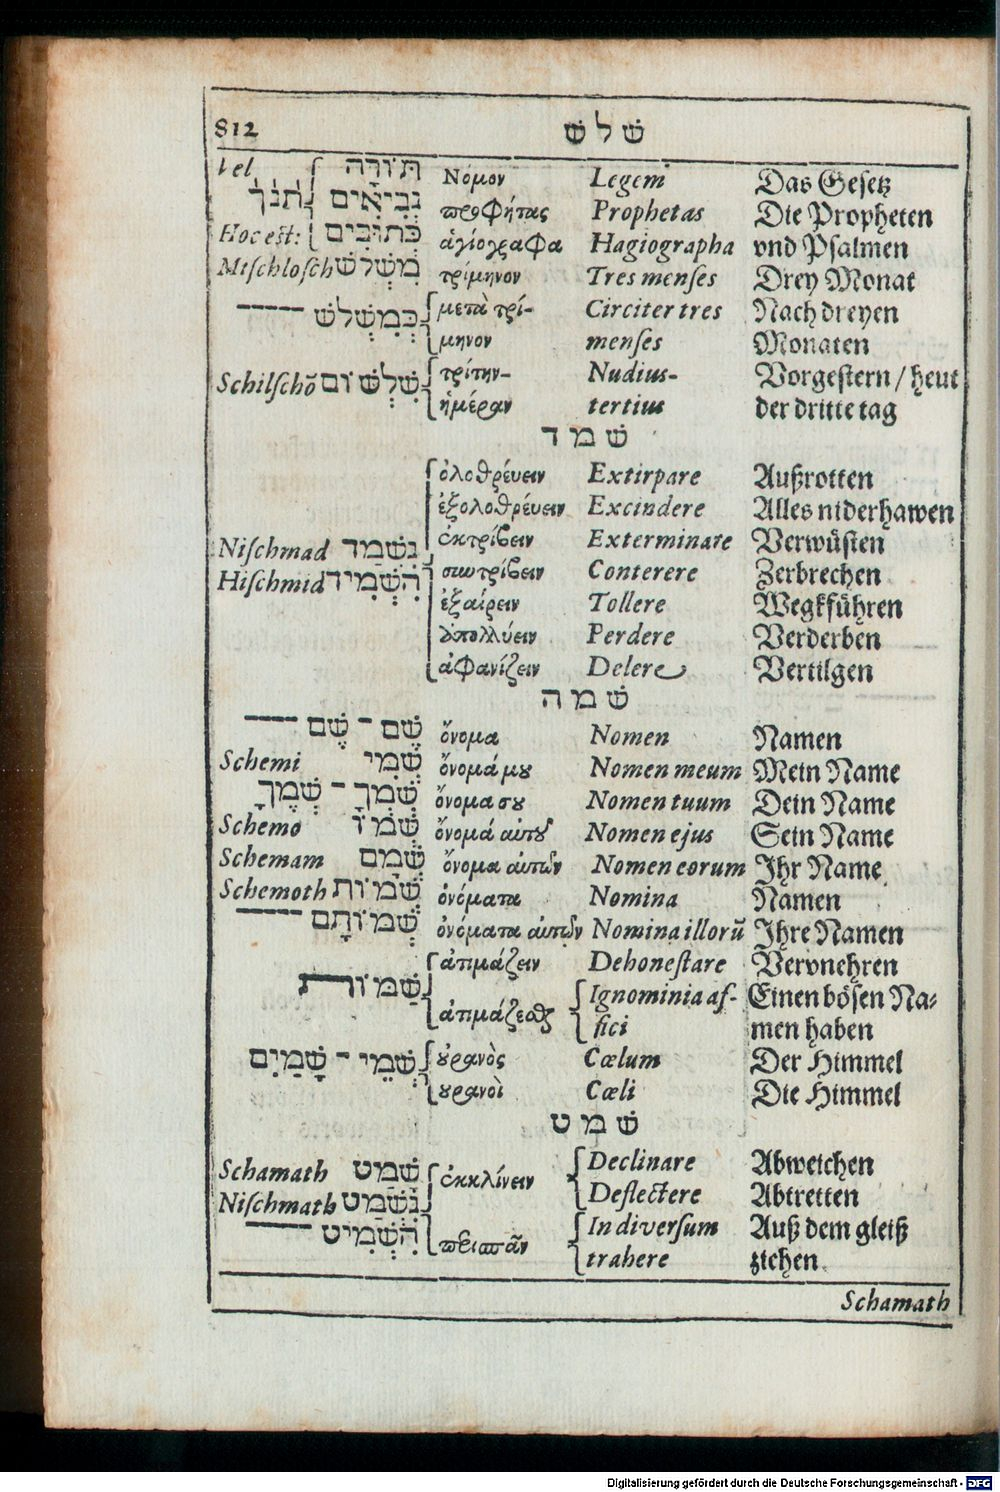 812 שׁלשׁ
Vel תּוֹרָה Νόμον Legem Das Gesetz
תנך נְבִיאִים προφήτας Prophetas Die Propheten
Hoc est: כְּתוּבִים ἁγιόγραφα Hagiographa vnd Psalmen
Mischlosch מִשְׁלשׁ τρίμηνον Tres menses Drey Monat
—— כְּמִשְׁלשׁ μετὰ τρί- Circiter tres Nach dreyen
μηνον menses Monaten
Schilschõ שִׁלְשׁוֹם τρίτην- Nudius- Vorgestern / heut
ἡμέραν tertius der dritte tag
שׁמד
ὀλοθρέυειν Extirpare Außrotten
ἐξολοθρέυειν Excindere Alles niderhawen
Nischmad נִשְׁמַד ἐκτρίβειν Exterminare Verwüsten
Hischmid הִשְׁמִיד συντρίβειν Conterere Zerbrechen
ἐξαίρειν Tollere Wegkführen
ἀπολλύειν Perdere Verderben
ἀφανίζειν Delere Vertilgen
שׁמה
—— שֵׁם - שֶׁם ὄνομα Nomen Namen
Schemi שְׁמִי ὄνομά μου Nomen meum Mein Name
שִׁמְךָ - שְׁמֶךָ ὄνομα σου Nomen tuum Dein Name
Schemo שְׁמוֹ ὄνομά αὐτοῦ Nomen ejus Sein Name
Schemam שְׁמָם ὄνομα αὐτῶν Nomen eorum Ihr Name
Schemoth שְׁמוֹת ὀνόματα Nomina Namen
—— שְׁמוֹתָם ὀνόματα αὐτῶν Nomina illorũ Ihre Namen
ἀτιμάζειν Dehonestare Vervnehren
שַׁמּוֹת Ignominia af- Einen bösen Na-
ἀτιμάζεσθαι fici men haben
שְׁמֵי - שָׁמַיִם οὐρανὸς Cœlum Der Himmel
οὐρανοὶ Cœli Die Himmel
שׁמט
Schamath שָׁמַט ἐκκλίνειν Declinare Abweichen
Nischmath נִשְׁמַט Deflectere Abtretten
—— הִשְׁמִיט περισπᾶν In diversum Auß dem gleiß
trahere ziehen.
Schamath
Digitalisierung gefördert durch die Deutsche Forschungsgemeinschaft - DFG